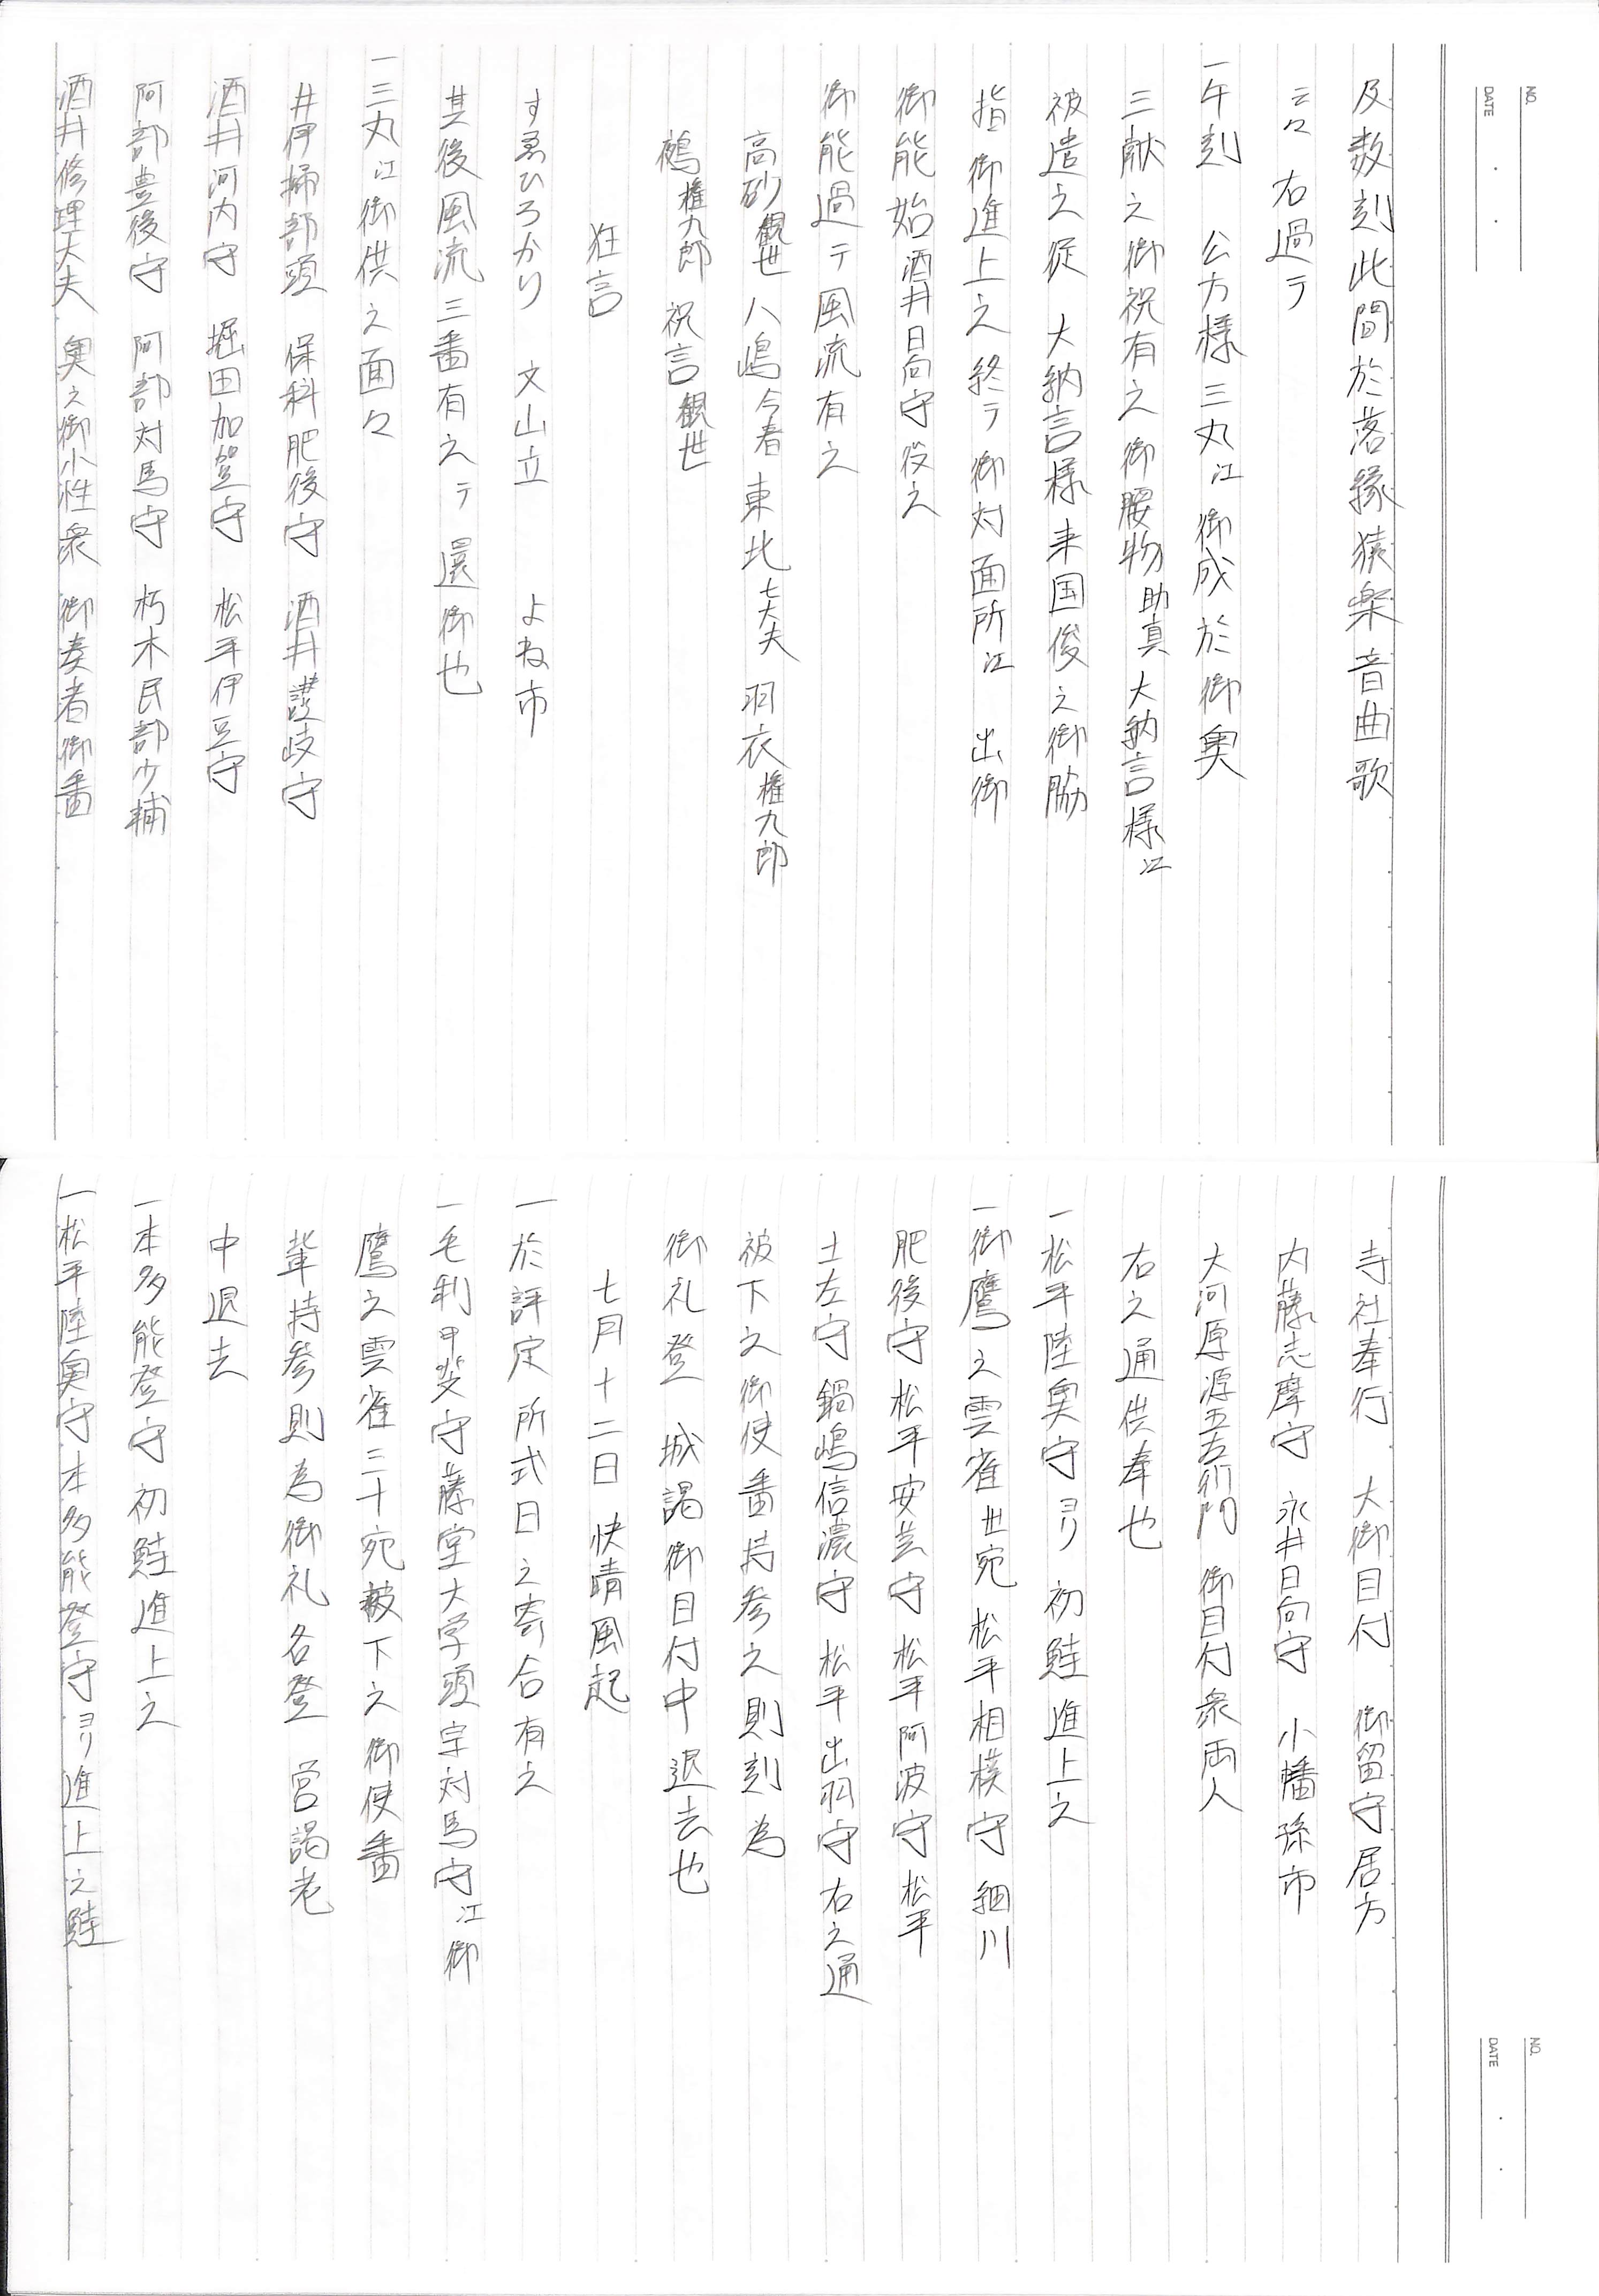 NO.
DATE
及数刻此間於落縁猿楽音曲歌
云々 右過テ
一午刻 公方様三丸江御成於御奥
三献之御祝有之御腰物助真大納言様江
被遣之従 大納言様来国俊之御脇
指御進上之終テ御対面所江 出御
御能始酒井日向守役之
御能過テ風流有之
高砂観世 八嶋今春 東北七大夫 羽衣権九郎
鵺権九郎 祝言観世
狂言
すゑひろかり 文山立 よね市
其後風流三番有之テ還御也
一三丸江御供之面々
井伊掃部頭 保科肥後守 酒井讃岐守
酒井河内守 堀田加賀守 松平伊豆守
阿部豊後守 阿部対馬守 朽木民部少輔
酒井修理大夫 奥之御小性衆 御奏者御番
NO.
DATE
寺社奉行 大御目付 御留守居方
内藤志摩守 永井日向守 小幡孫市
大河原源五左衛門 御目付衆両人
右之通供奉也
一松平陸奥守ヨリ初鮭進上之
一御鷹之雲雀卅宛松平相模守細川
肥後守松平安芸守松平阿波守松平
土左守鍋嶋信濃守松平出羽守右之通
被下之御使番持参之則刻為
御礼登 城謁御目付中退去也
七月十二日快晴風起
一於評定所式日之寄合有之
一毛利甲斐守藤堂大学頭宗対馬守江御
鷹之雲雀三十宛被下之御使番
輩持参則為御礼各登 営謁老
中退去
一本多能登守初鮭進上之
一松平陸奥守本多能登守ヨリ進上之鮭